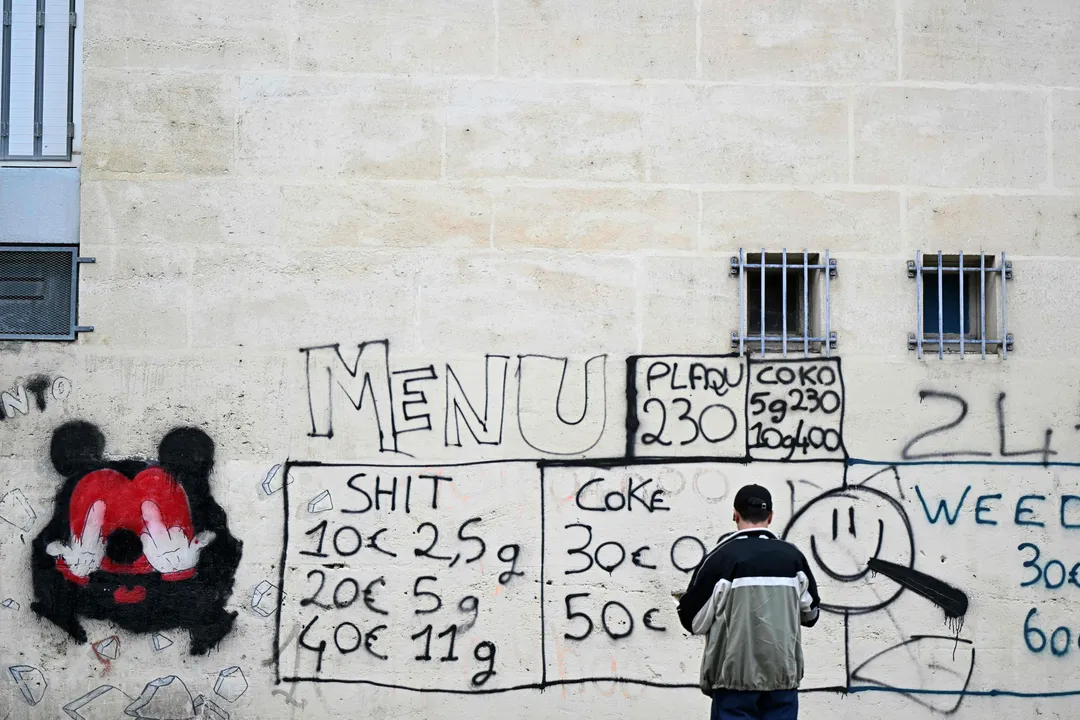 NTO
MENU
PLAQU
230
COKO
5g 230
10g 400
24
SHIT
10€ 2,5g
20€ 5g
40€ 11g
COKE
30€ 0
50€
WEED
30€
60